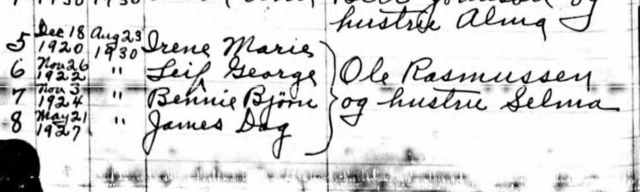 hustrue Alma
5 Dec 18 1920 Aug 23 1930 Irene Marie
6 Nov 26 1922 " Leif George
7 Nov 3 1924 " Bennie Björn
8 May 21 1927 " James Dag
Ole Rasmussen
og hustrue Selma